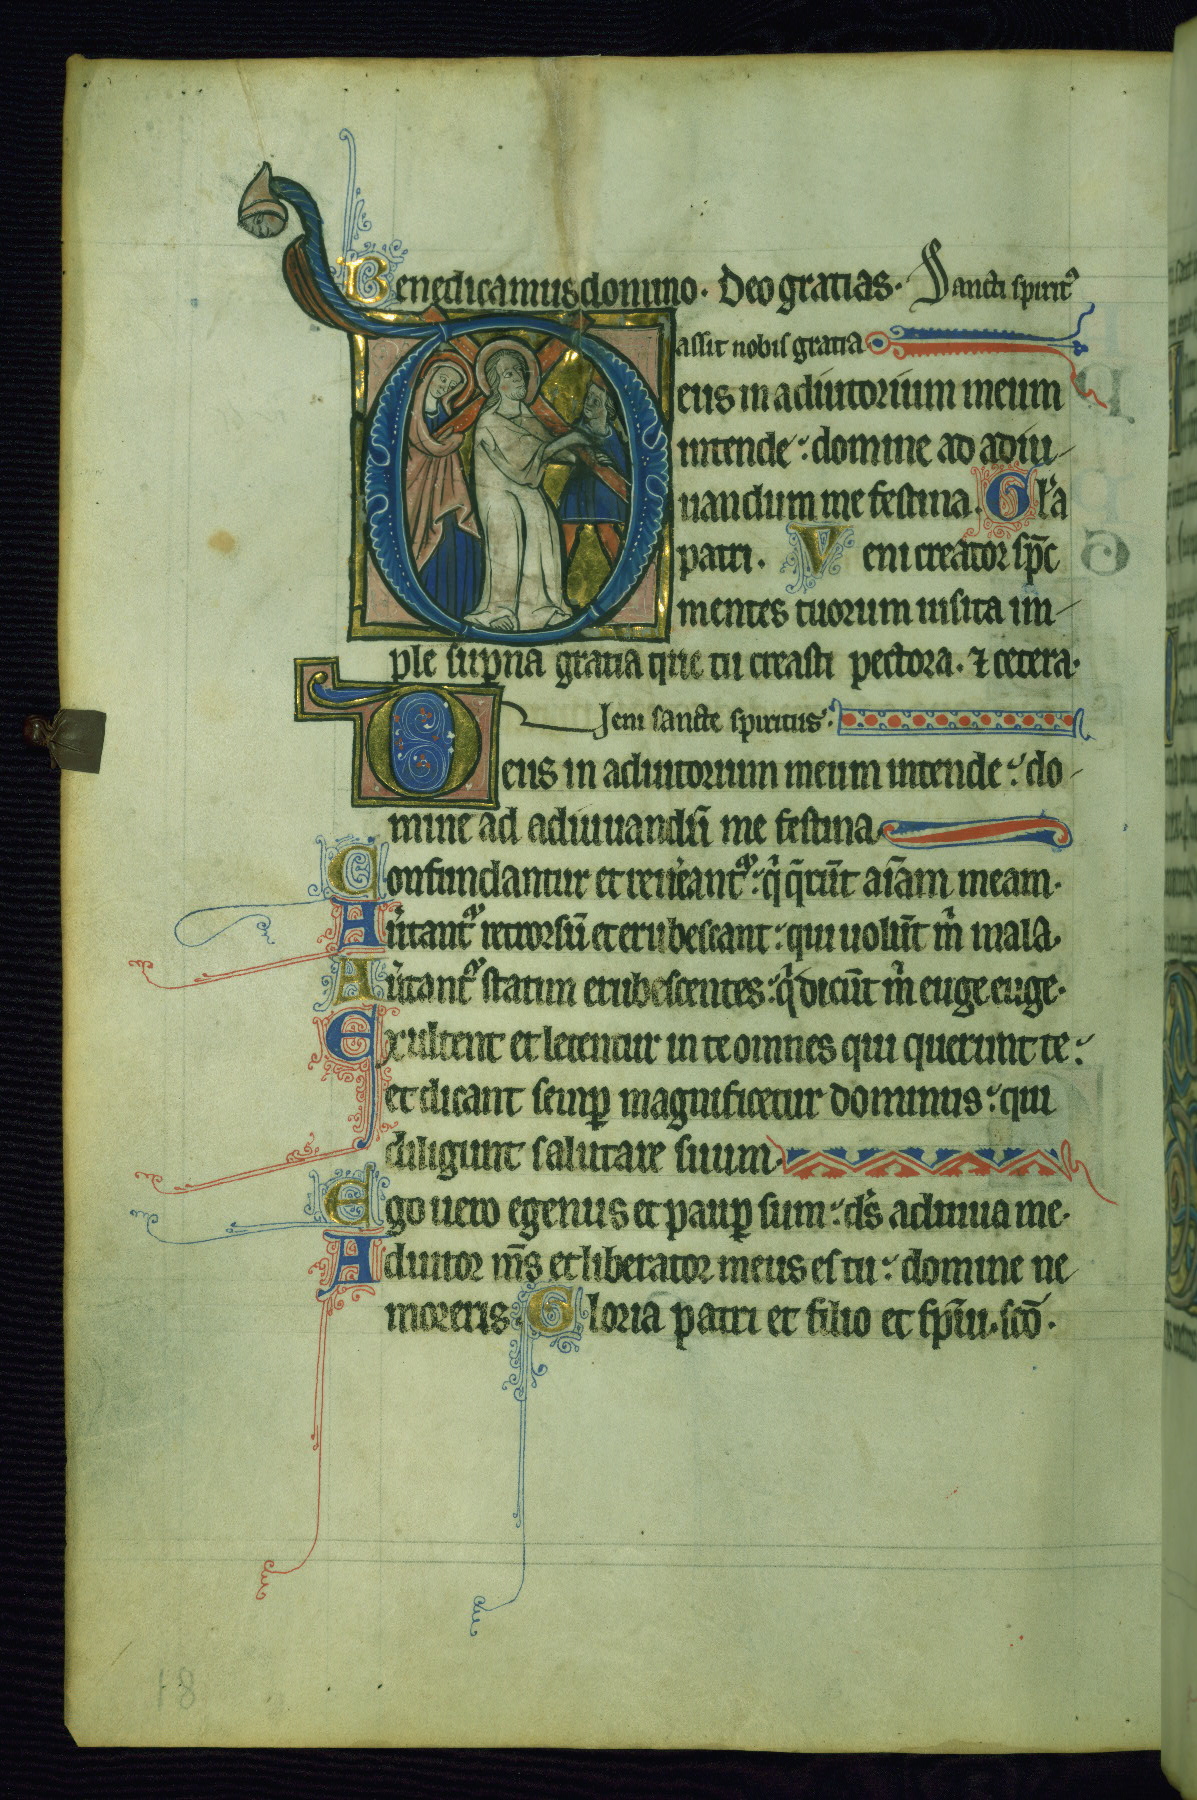 Benedicamus domino. Deo gratias. Sancti spirit᷒
assit nobis gratia
Deus in adiutorium meum
intende: domine ad adiu-
uandum me festina. Gl'a
patri. Veni creator sp̄c
mentes tuorum uisita im-
ple sup̄na gratia que tu creasti pectora. ⁊ cetera.
Veni sancte spiritus.
Deus in adiutorium meum intende: do-
mine ad adiuuandū me festina
Confundantur et reu'eant᷑: q̄ q̄rūt aīam meam.
Au'tant᷑ retrorsū et erubescant: qui uolūt m̄ mala.
Au'tant᷑ statim erubescentes: q̄ dicūt m̄ euge euge.
Exultent et letentur in te omnes qui querunt te:
et dicant semꝑ magnificetur dominus: qui
diligunt salutare suum.
Ego uero egenus et pauꝑ sum: d's adiuua me.
Adiutor m̄s et liberator meus es tu: domine ne
moreris. Gloria patri et filio et sp̄iu. scō.
18